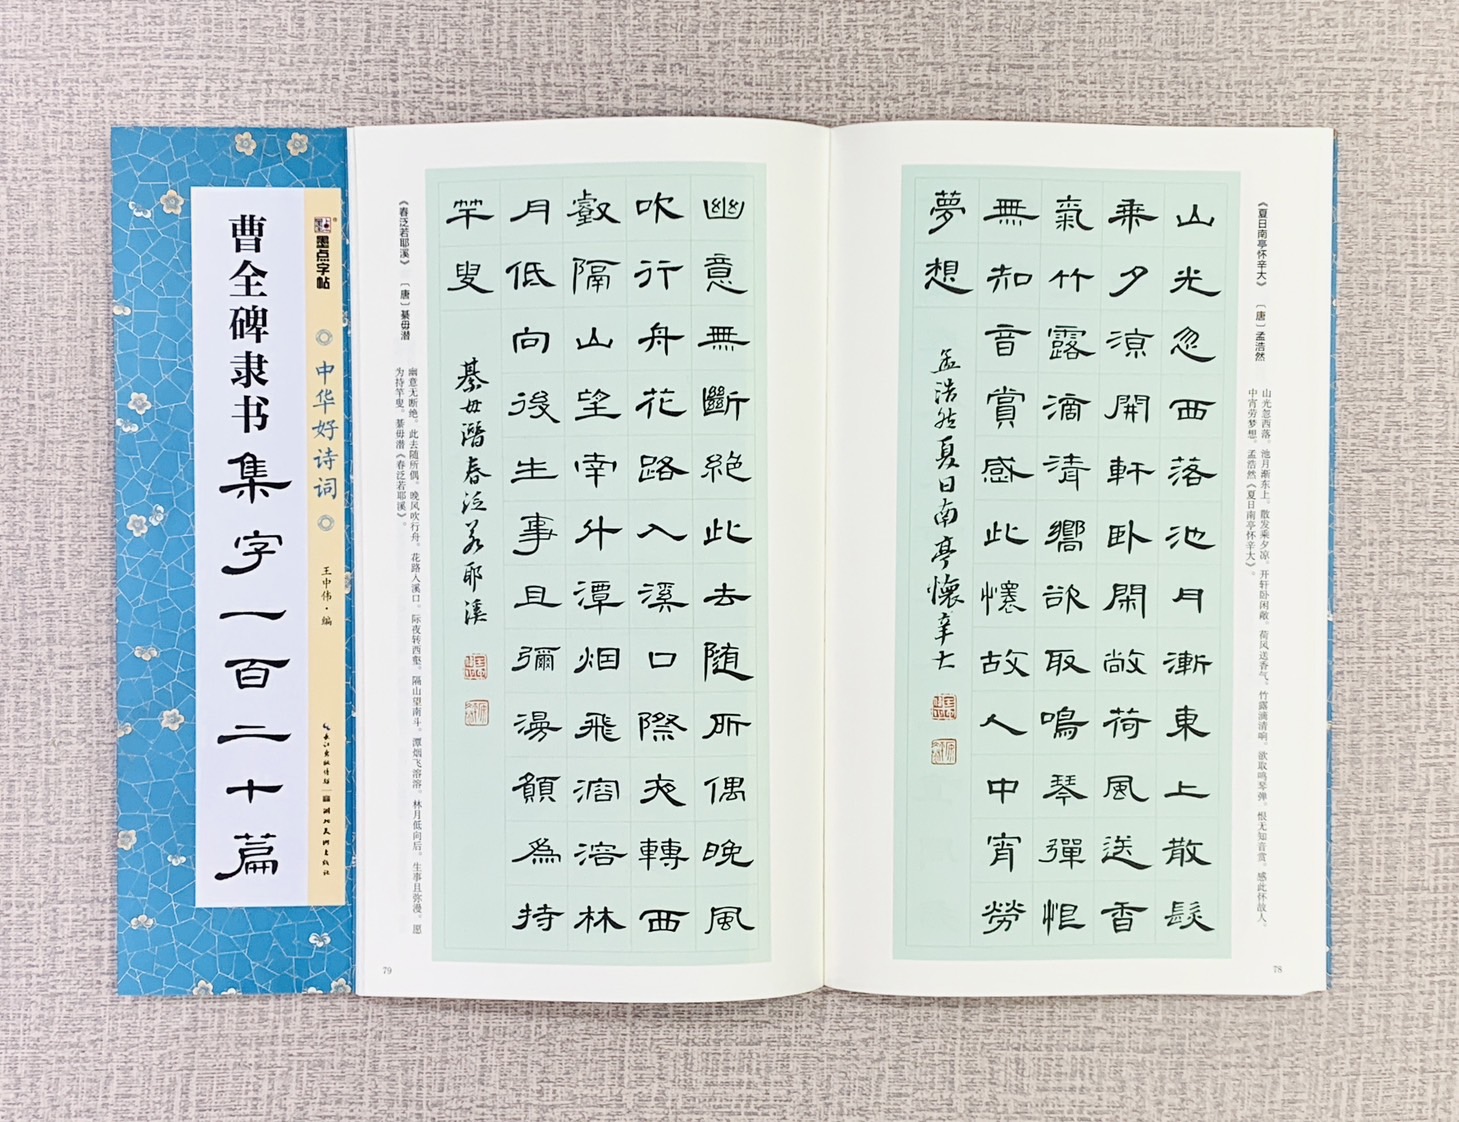 曹全碑隶书集字一百二十篇
墨点字帖
中华好诗词
王中伟·编
长江出版传媒 湖北美术出版社
《夏日南亭怀辛大》 〔唐〕孟浩然
山光忽西落。池月渐东上。散发乘夕凉。开轩卧闲敞。荷风送香气。竹露滴清响。欲取鸣琴弹。恨无知音赏。感此怀故人。
中宵劳梦想。孟浩然《夏日南亭怀辛大》。
山光忽西落池月漸東上散髮
乘夕涼開軒卧閑敞荷風送香
氣竹露滴清響欲取鳴琴彈恨
無知音賞感此懷故人中宵勞
夢想
孟浩然夏日南亭懷辛大
78
幽意無斷絕此去随所偶晚風
吹行舟花路入溪口際夜轉西
壑隔山望南斗潭烟飛溶溶林
月低向後生事且彌漫願為持
竿叟
綦毋潛春泛若耶溪
《春泛若耶溪》 〔唐〕綦毋潜
幽意无断绝。此去随所偶。晚风吹行舟。花路入溪口。际夜转西壑。隔山望南斗。潭烟飞溶溶。林月低向后。生事且弥漫。愿
为持竿叟。綦毋潜《春泛若耶溪》。
79